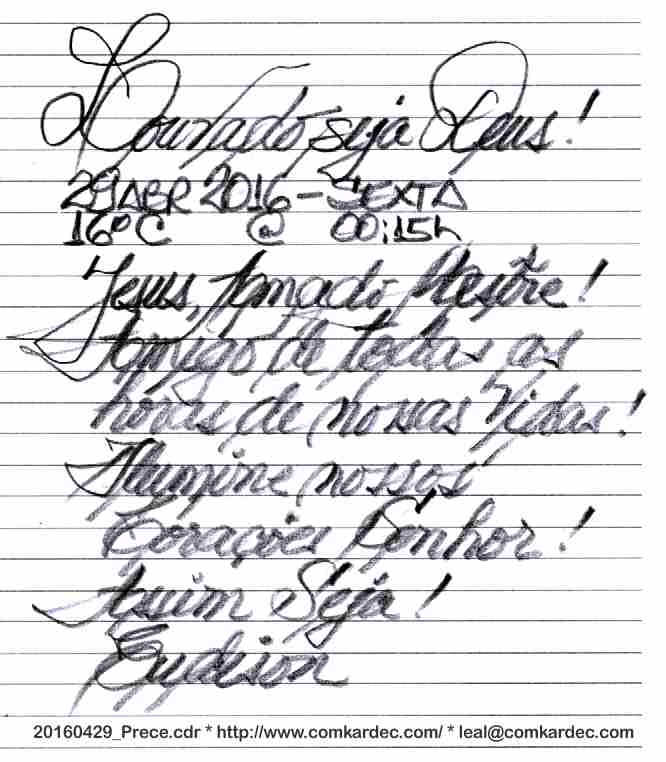 Louvado seja Deus!
29 ABR 2016 - SEXTA
16ºC @ 00:15h
Jesus, Amado Mestre!
Amigo de todas as
horas de nossas Vidas!
Ilumine nossos
Corações Senhor!
Assim Seja!
20160429_Prece.cdr * http://www.comkardec.com/ * leal@comkardec.com